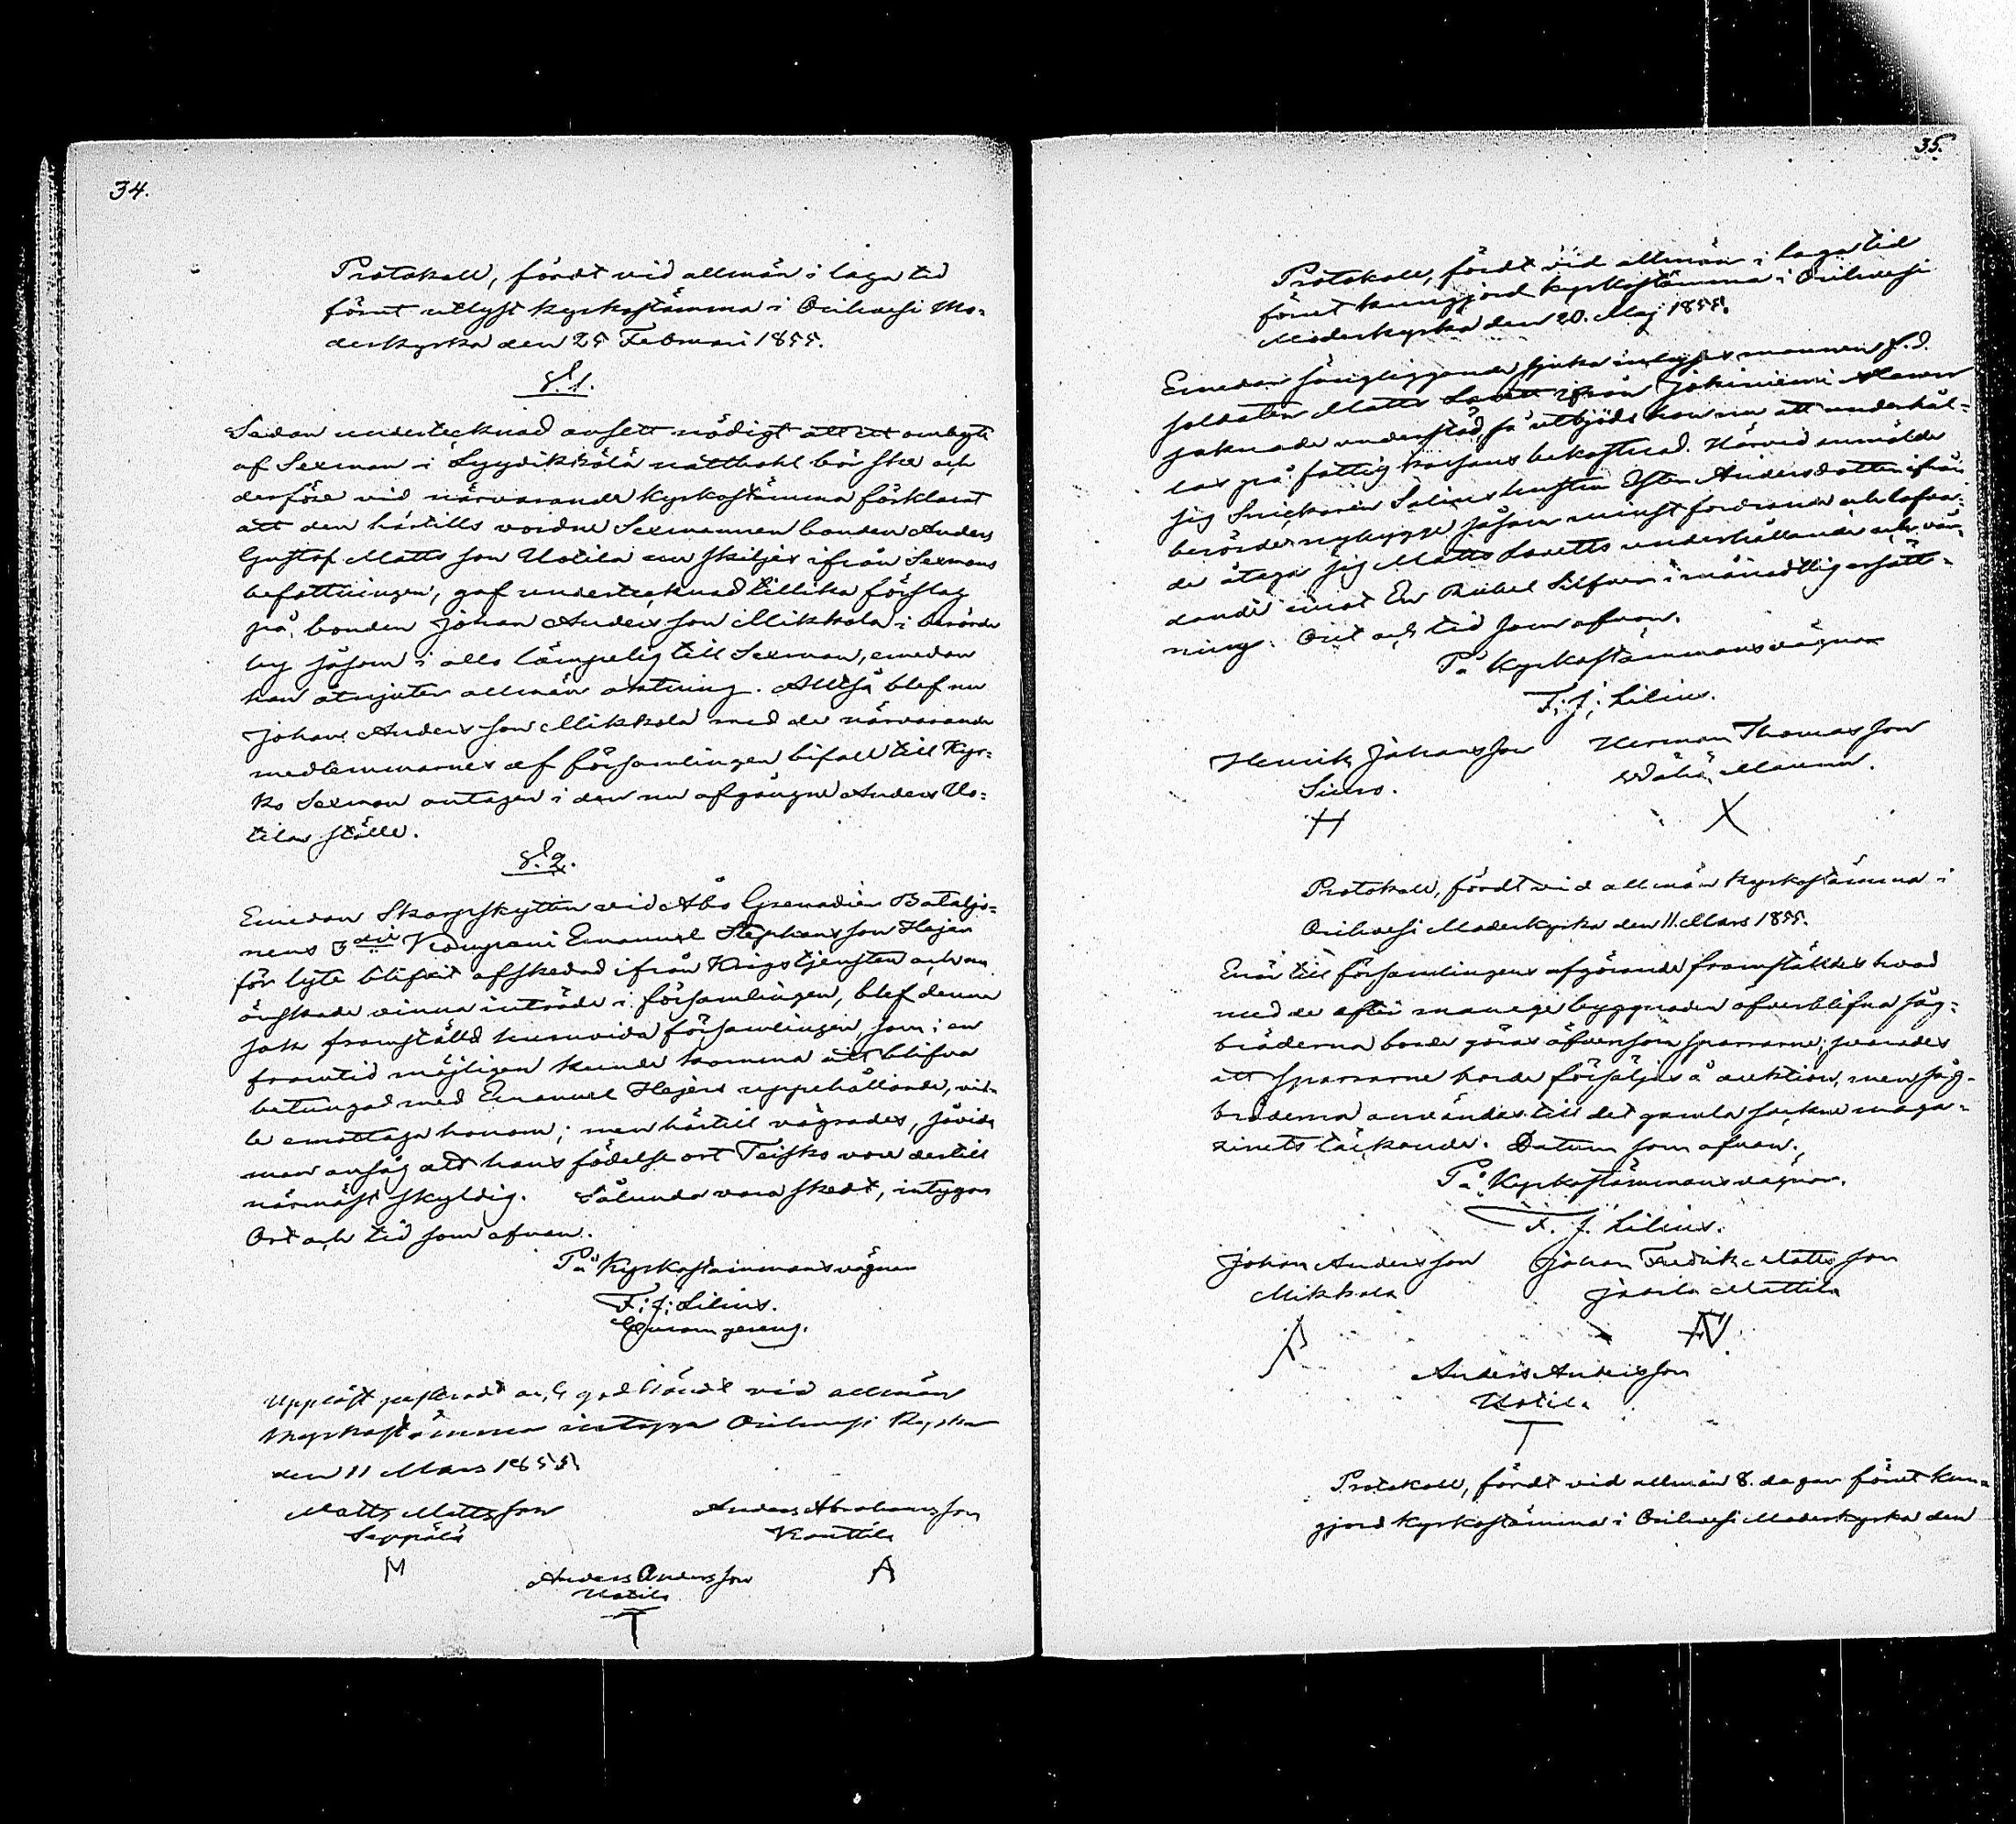 34.
Protokoll, fördt vid allmän i laga tid
förut utlyst kyrkostämma i Orihvesi Mo-
derkyrka den 25 Februari 1855.
§.1.
Sedan undertecknad ansett nödigt att ett ombyte
af Sexman i Lyydikkölä nattbohl bör ske och
derföre vid närvarande kyrkostämma förklarat
att den härtills vordne Sexmannen bonden Anders
Gustaf Matts son Uotila nu skiljes ifrån Sexmans
befattningen, gaf undertecknad tillika förslag
på bonden Johan Anders son Mikkola i berörde
by såsom i allo lämpelig till Sexman, emedan
han åtnjuter allmän aktning. Alltså blef nu
Johan Anders son Mikkola med de närvarande
medlemmarnes af församlingen bifall till Kyr-
ko Sexman antagen i den nu afgångne Anders Uo-
tilas ställe.
§.2.
Emedan Skarpskytten vid Åbo Grenadier Bataljo-
nens 3die Kompani Emanuel Stephans son Hejen
för lyte blifvit afskedad ifrån Krigstjensten och nu
önskade vinna inträde i församlingen, blef denna
sak framställd huruvida församlingen, som i en
framtid möjligen kunde komma att blifva
betungad med Emanuel Hejens uppehållande, vil-
le emottaga honom; men härtill vägrades, såvida
man ansåg att hans födelse ort Teisko vore dertill
närmast skyldig. Sålunda vara skedt, intygar
Ort och tid som ofvan.
På Kyrkostämmans vägnar
F: J: Lilius.
Uppläst justeradt och godkändt vid allmän
Kyrkostämma intygga Orihvesi Kyrka
den 11 Mars 1855
Matts Mattsson Anders Abrahamsson
Seppälä Konttila
M A
Anders Andersson
Uotila
T
35.
Protokoll, fördt vid allmän i laga tid
förut kungjord kyrkostämma i Orihvesi
Moderkyrka den 20. Maj 1855.
Emedan sängliggande sjuka inhyses mannen f.d.
soldaten Matts Lorett ifrån Jokiniemi
saknade understöd, så utbjöds han nu att underhål-
las på fattig kassans bekostnad. Härvid anmälde
sig Snickaren Salins hustru Ester Andersdotter ifrån
berörde nybygge såsom minst fordrande och lofva-
de åtaga sig Matts Loretts underhållande och vår-
dande emot En Rubel Silfver i månadtlig ersätt-
ning. Ort och tid som ofvan.
På Kyrkostämmans vägnar
F: J: Lilius.
Henrik Johansson Herman Thomasson
Siuro. Wähä Maunu.
H X
Protokoll, fördt vid allmän Kyrkostämma i
Orihvesi Moderkyrka den 11. Mars 1855.
Enär till församlingens afgörande framställdes hvad
med de efter manege byggnaden öfverblifna såg-
bräderna borde göras äfvensom sparrarne; svarades
att sparrarne borde försäljas å auktion, men såg-
bräderna användas till det gamla sockne maga-
zinets täckande. Datum som ofvan.
På Kyrkostämmans vägnar.
F. J. Lilius.
Johan Andersson Johan Fredrik Matts son
Mikkola Jäärilä Mattila
Anders Andersson
Uotila
T
Protokoll, fördt vid allmän 8. dagar förut kun-
gjord kyrkostämma i Orihvesi Moderkyrka den